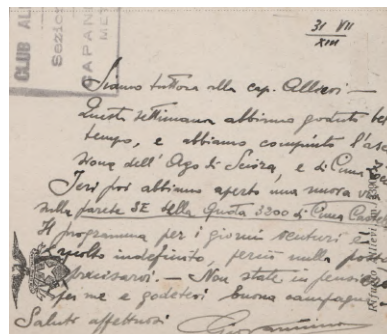 CLUB AL
Sezion
CAPAN
MET
31 VII
XIII
Siamo tuttora alla cap. Allievi –
Questa settimana abbiamo goduto bel
tempo, e abbiamo compiuto l'asc
sione dell'Ago di Sciora, e di Cima
Ieri poi abbiamo aperto una nuova v
sulla parete SE della Quota 3200 di Cima
Il programma per i giorni venturi è
molto indefinito, perciò nulla posso
precisarvi. – Non state in pensie
per me e godetevi buona campagna
Saluti affettuosi
Rifugio Allievi